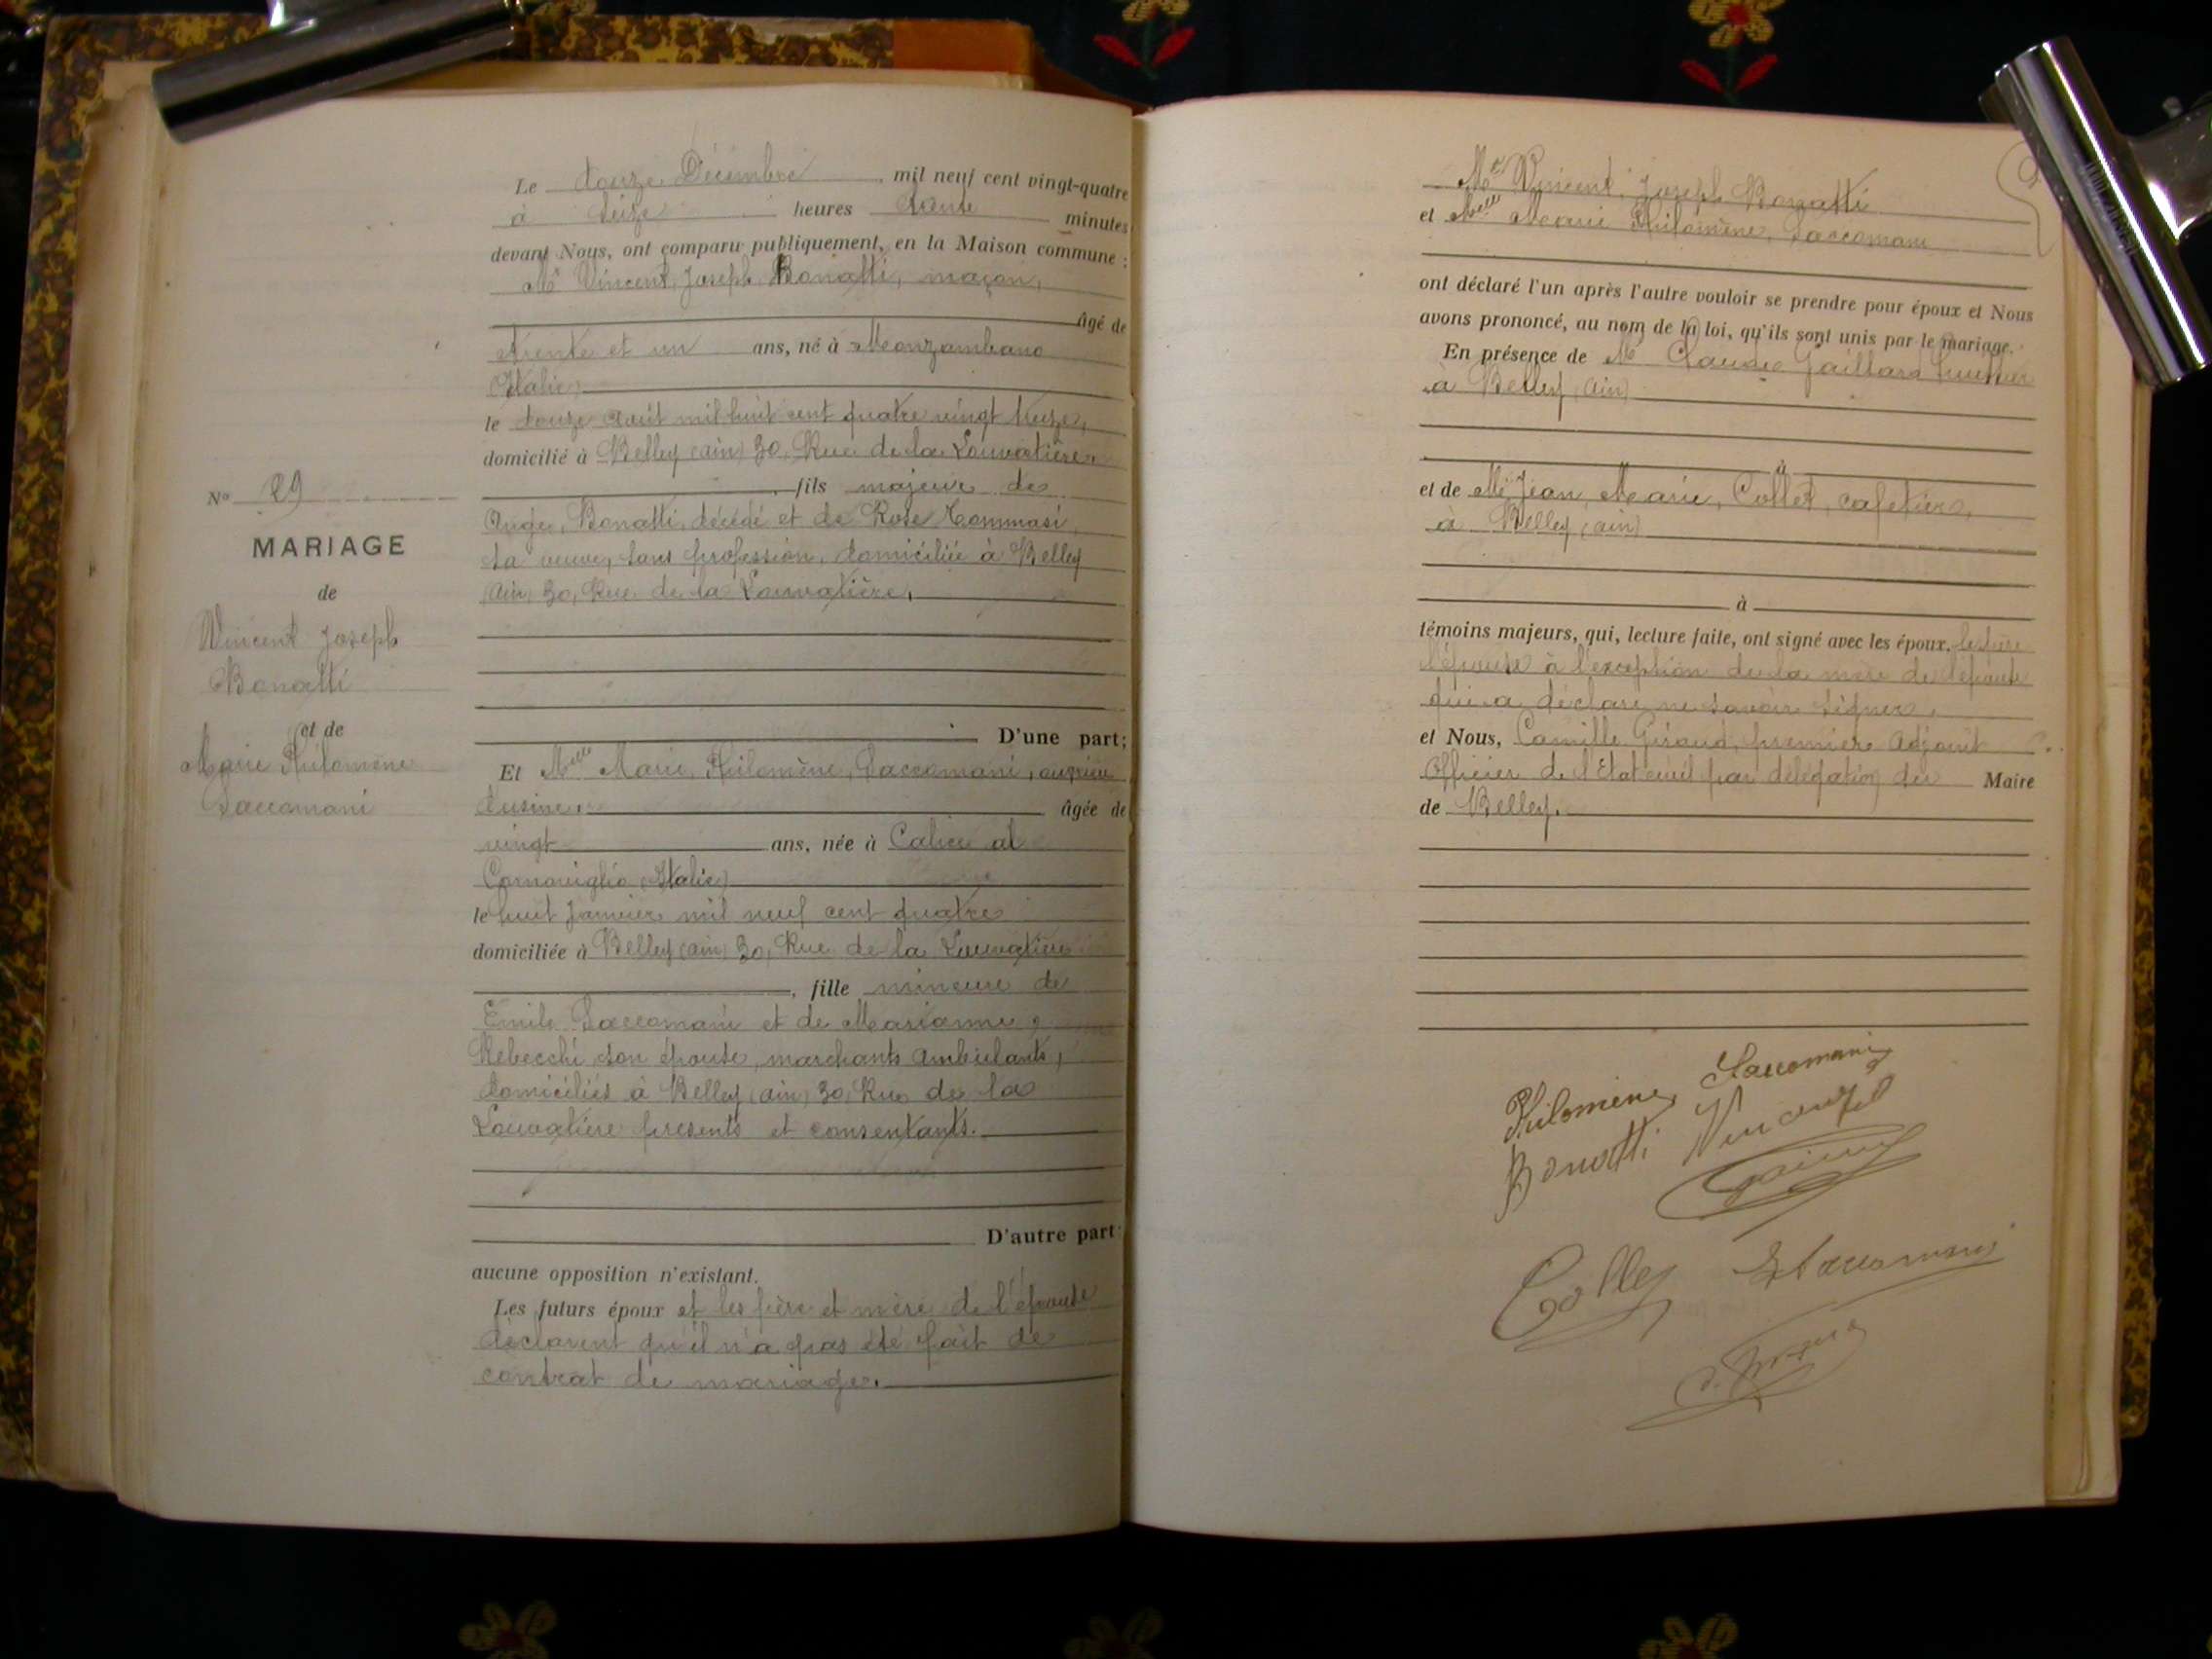 Le douze Décembre mil neuf cent vingt-quatre
à seize heures trente minutes
devant Nous, ont comparu publiquement, en la Maison commune :
Mr Vincent, Joseph, Bonatti, maçon,
âgé de
trente et un ans, né à Monzambano
(Italie)
le douze août mil huit cent quatre vingt treize,
domicilié à Belley (ain) 30, Rue de la Louvatière,
fils majeur de
Ange, Bonatti, décédé et de Rose Tommasi,
sa veuve, sans profession, domiciliée à Belley
(Ain) 30, Rue de la Louvatière,
D'une part;
Et Melle Marie, Philomène, Saccomani, ouvrière
d'usine, âgée de
vingt ans, née à Calice al
Cornoviglio (Italie)
le huit Janvier mil neuf cent quatre
domiciliée à Belley (ain) 30, Rue de la Louvatière
, fille mineure de
Emile Saccomani et de Marianne
Rebecchi son épouse, marchants ambulants,
domiciliés à Belley (ain) 30, Rue de la
Louvatière présents et consentants.
D'autre part:
aucune opposition n'existant.
Les futurs époux et les père et mère de l'épouse
déclarent qu'il n'a pas été fait de
contrat de mariage.
No 29
MARIAGE
de
Vincent Joseph
Bonatti
et de
Marie Philomène
Saccomani
Mr Vincent, Joseph Bonatti
et Melle Marie Philomène, Saccomani
ont déclaré l'un après l'autre vouloir se prendre pour époux et Nous
avons prononcé, au nom de la loi, qu'ils sont unis par le mariage.
En présence de Mr Claude Gaillard
à Belley (ain)
à
et de Mr Jean, Marie, Collet, cafetier,
à Belley (ain)
à
témoins majeurs, qui, lecture faite, ont signé avec les époux, le père
l'épouse à l'exception de la mère de l'épouse
qui a déclaré ne savoir signer.
et Nous, Camille Giraud, premier Adjoint
Officier de l'Etat civil par délégation du Maire
de Belley.
Philomène Saccomani
Bonatti
Saccomani